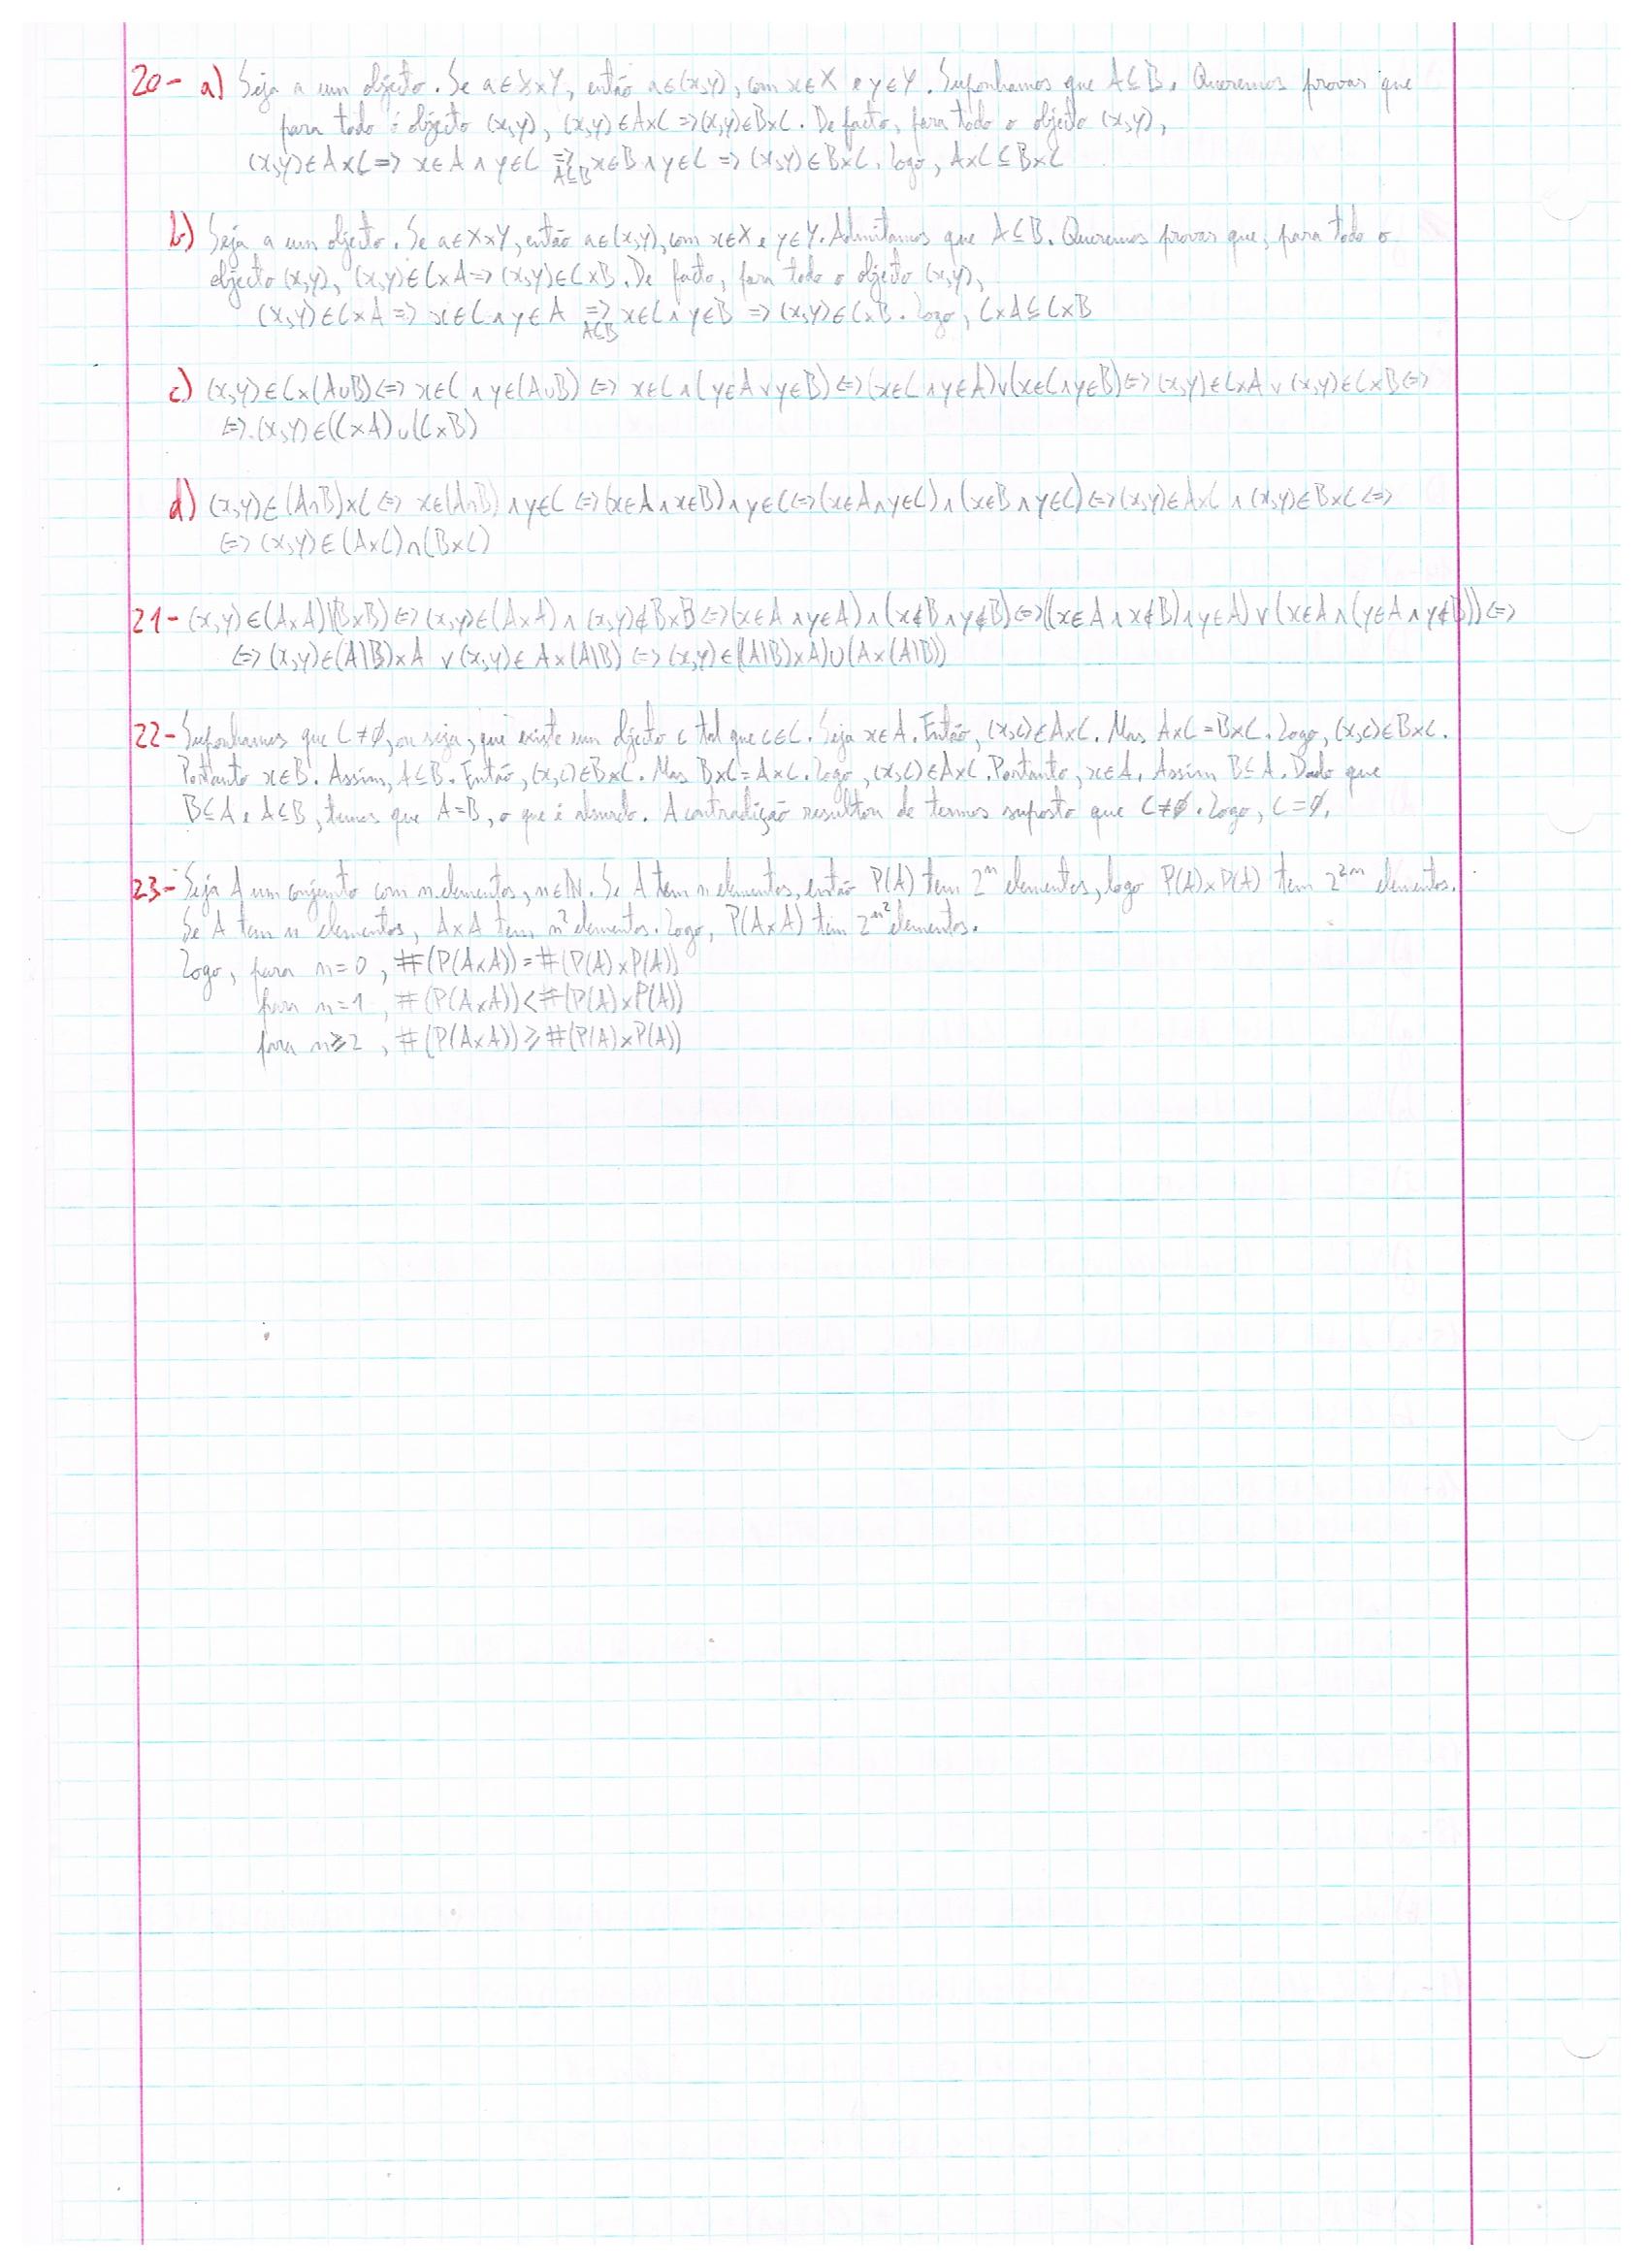 20- a) Seja a um objecto. Se a∈X×Y, então a∈(x,y), com x∈X e y∈Y. Suponhamos que A⊆B. Queremos provar que
para todo o objecto (x,y), (x,y)∈A×C => (x,y)∈B×C. De facto, para todo o objecto (x,y),
(x,y)∈A×C => x∈A ∧ y∈C =>A⊆B x∈B ∧ y∈C => (x,y)∈B×C. Logo, A×C ⊆ B×C
b) Seja a um objecto. Se a∈X×Y, então a∈(x,y), com x∈X e y∈Y. Admitamos que A⊆B. Queremos provar que, para todo o
objecto (x,y), (x,y)∈C×A => (x,y)∈C×B. De facto, para todo o objecto (x,y),
(x,y)∈C×A => x∈C ∧ y∈A =>A⊆B x∈C ∧ y∈B => (x,y)∈C×B. Logo, C×A⊆C×B
c) (x,y)∈C×(A∪B) <=> x∈C ∧ y∈(A∪B) <=> x∈C ∧ (y∈A ∨ y∈B) <=> (x∈C ∧ y∈A) ∨ (x∈C ∧ y∈B) <=> (x,y)∈C×A ∨ (x,y)∈C×B <=>
<=> (x,y)∈(C×A)∪(C×B)
d) (x,y)∈(A∩B)×C <=> x∈(A∩B) ∧ y∈C <=> (x∈A ∧ x∈B) ∧ y∈C <=> (x∈A ∧ y∈C) ∧ (x∈B ∧ y∈C) <=> (x,y)∈A×C ∧ (x,y)∈B×C <=>
<=> (x,y)∈(A×C)∩(B×C)
21- (x,y)∈(A×A)\(B×B) <=> (x,y)∈(A×A) ∧ (x,y)∉B×B <=> (x∈A ∧ y∈A) ∧ (x∉B ∧ y∉B) <=> ((x∈A ∧ x∉B) ∧ y∈A) ∨ (x∈A ∧ (y∈A ∧ y∉B)) <=>
<=> (x,y)∈(A\B)×A ∨ (x,y)∈A×(A\B) <=> (x,y)∈((A\B)×A)∪(A×(A\B))
22- Suponhamos que C≠∅, ou seja, que existe um objecto c tal que c∈C. Seja x∈A. Então, (x,c)∈A×C. Mas A×C=B×C. Logo, (x,c)∈B×C.
Portanto x∈B. Assim, A⊆B. Então, (x,c)∈B×C. Mas B×C=A×C. Logo, (x,c)∈A×C. Portanto, x∈A. Assim B⊆A. Dado que
B⊆A e A⊆B, temos que A=B, o que é absurdo. A contradição resultou de termos suposto que C≠∅. Logo, C=∅.
23- Seja A um conjunto com n elementos, n∈ℕ. Se A tem n elementos, então P(A) tem 2ⁿ elementos, logo P(A)×P(A) tem 2²ⁿ elementos.
Se A tem n elementos, A×A tem n² elementos. Logo, P(A×A) tem 2^n² elementos.
Logo, para n=0, #(P(A×A))=#(P(A)×P(A))
para n=1, #(P(A×A))<#(P(A)×P(A))
para n≥2, #(P(A×A))≥#(P(A)×P(A))